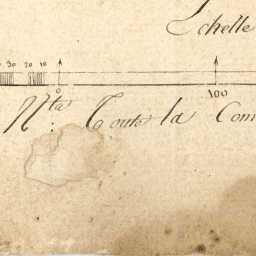 Echelle
30 20 10
0 100
N.ta Toute la Com